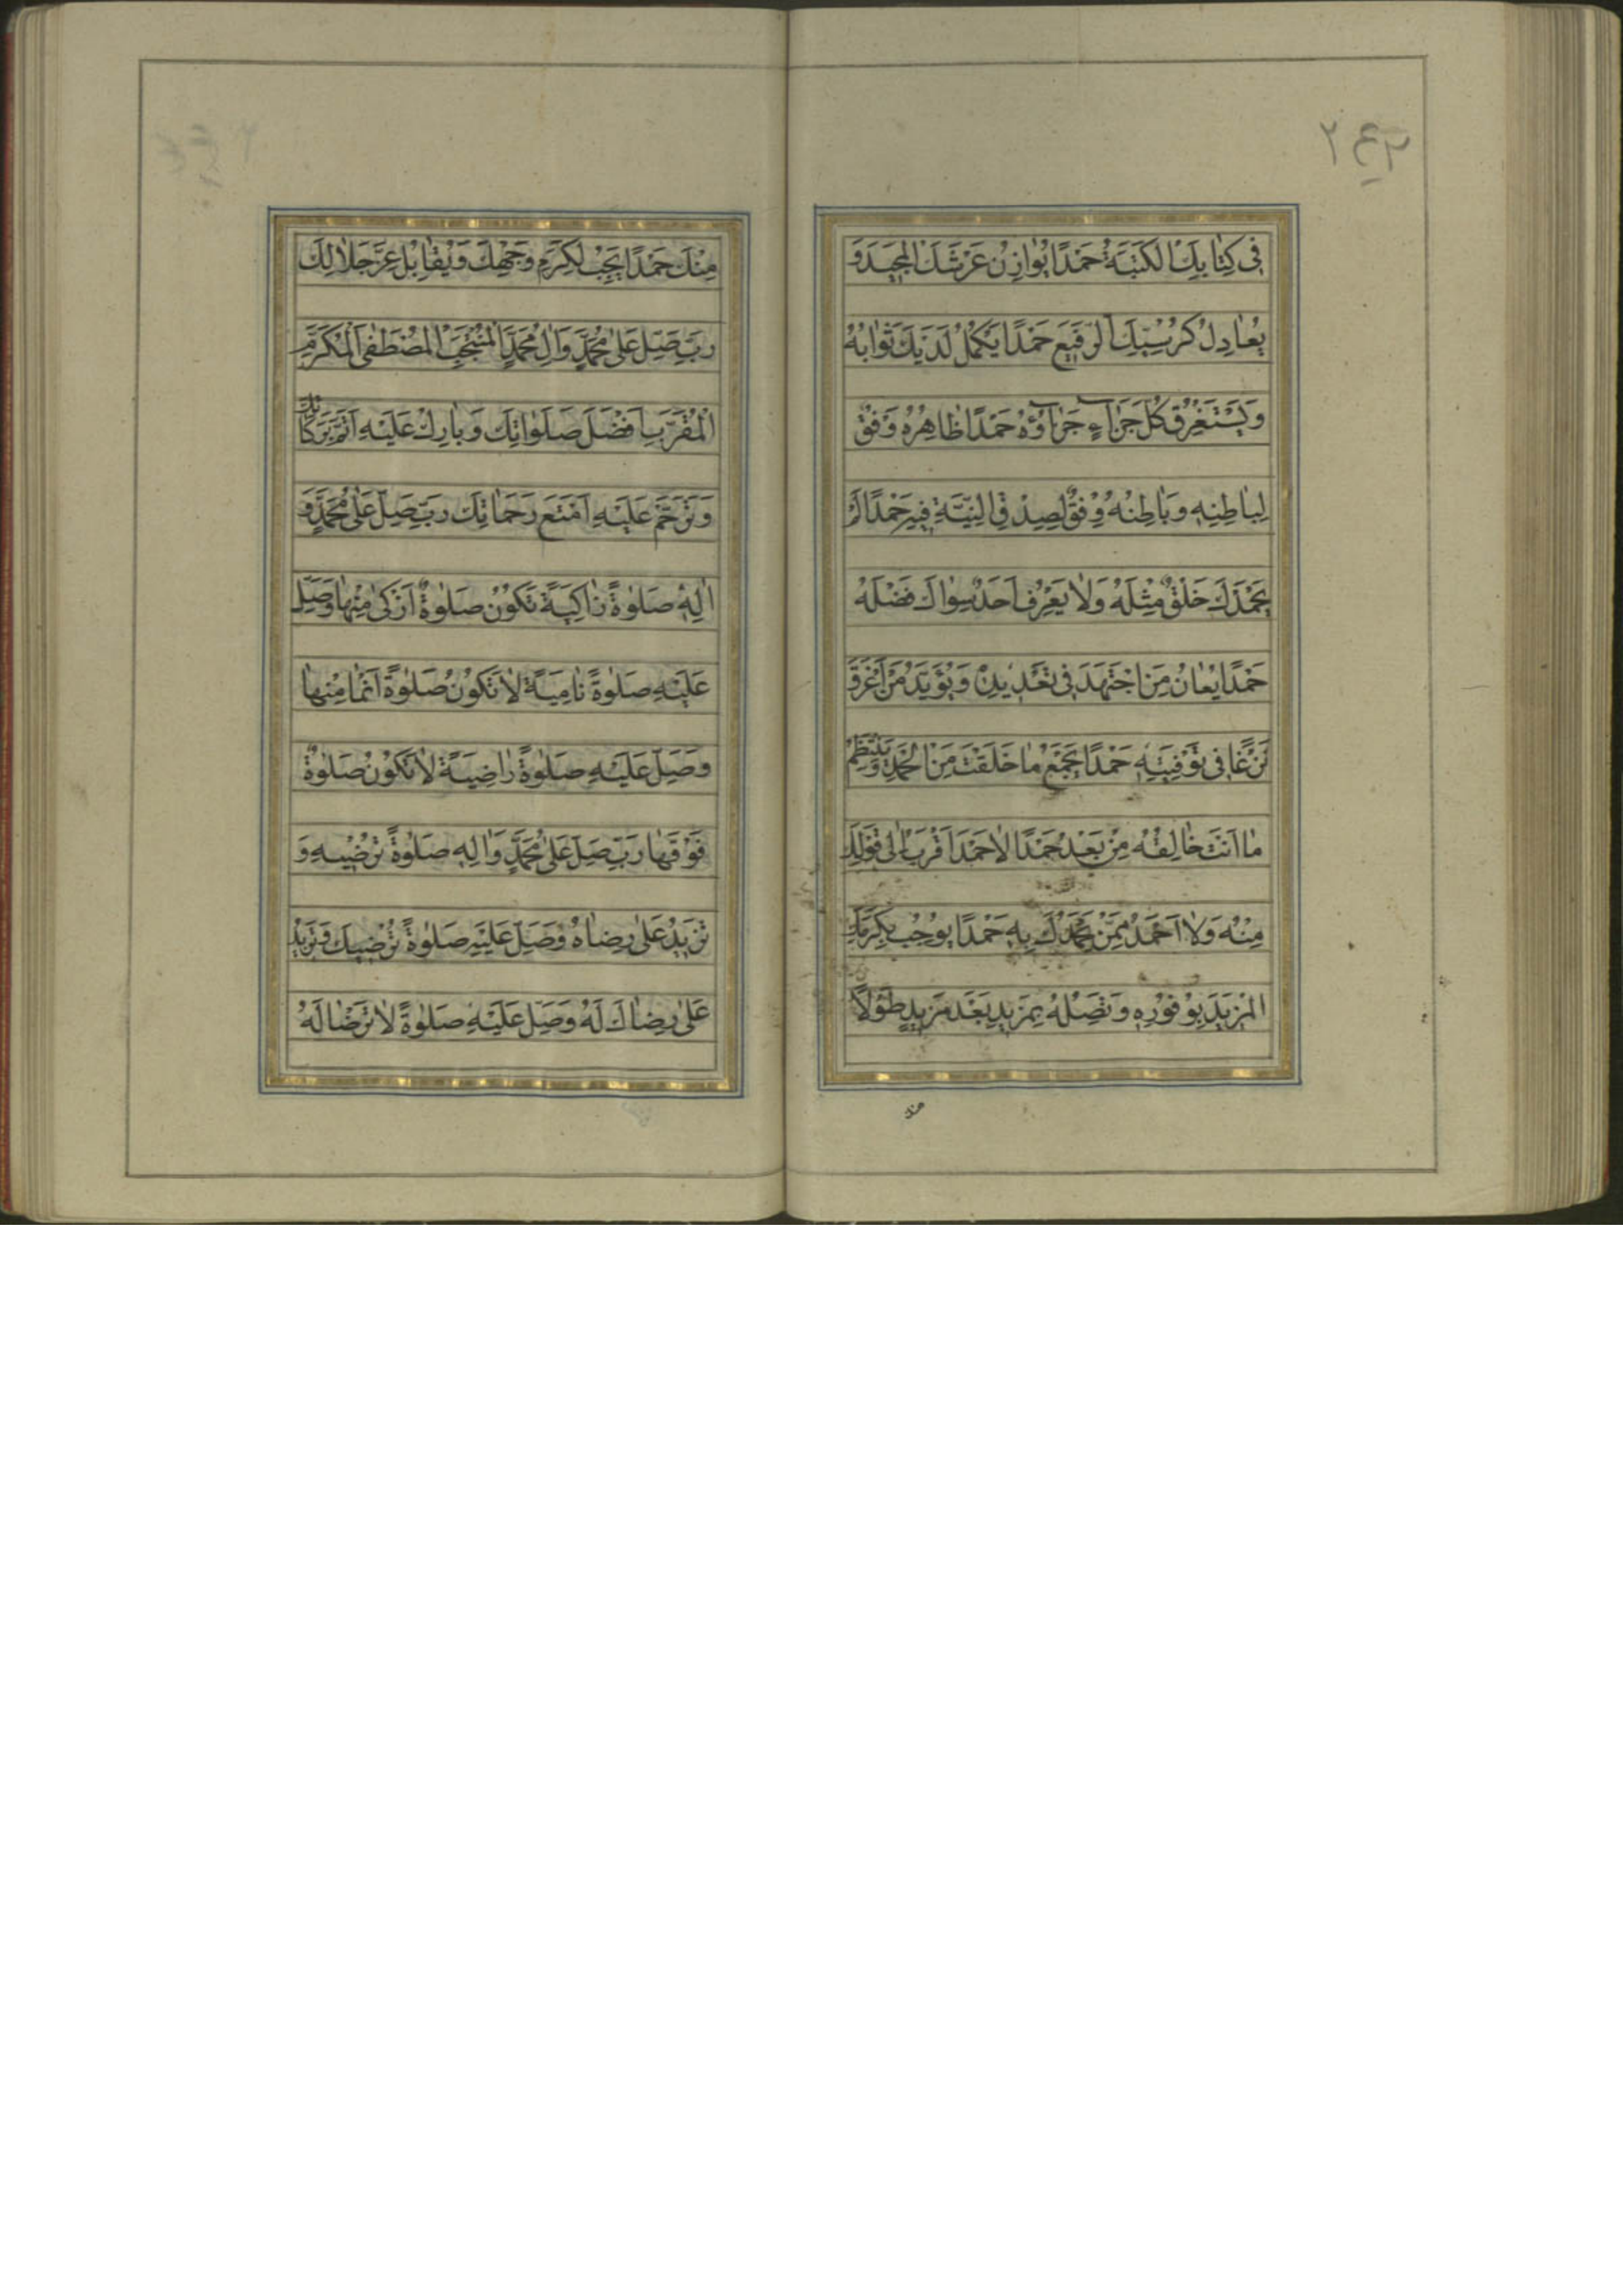 ٢٤٢
فِى كِتٰابِكَ الْكَتَبَةُ حَمْدًا يُوٰازِنُ عَرْشَكَ الْمَجيدَ وَ
يُعٰادِلُ كُرْسِيَّكَ الرَّفيعَ حَمْدًا يَكْمُلُ لَدَيْكَ ثَوٰابُهُ
وَيَسْتَغْرِقُ كُلَّ جَزٰآءٍ جَزٰآؤُهُ حَمْدًا ظٰاهِرُهُ وَفْقٌ
لِبٰاطِنِهِ وَبٰاطِنُهُ وِفْقٌ لِصِدْقِ النِّيَّةِ فيهِ حَمْدًا لَمْ
يَحْمَدْكَ خَلْقٌ مِثْلَهُ وَلٰا يَعْرِفُ اَحَدٌ سِوٰاكَ فَضْلَهُ
حَمْدًا يُعٰانُ مَنِ اجْتَهَدَ فى تَعْديدِهِ وَيُؤَيَّدُ مَنْ اَغْرَقَ
نَزْعًا فى تَوْفِيَتِهِ حَمْدًا يَجْمَعُ مٰا خَلَقْتَ مِنَ الْحَمْدِ وَيَنْتَظِمُ
مٰا اَنْتَ خٰالِقُهُ مِنْ بَعْدُ حَمْدًا لٰا حَمْدَ اَقْرَبُ اِلٰى قَوْلِكَ
مِنْهُ وَلٰا اَحْمَدَ مِمَّنْ يَحْمَدُكَ بِهِ حَمْدًا يُوجِبُ بِكَرَمِكَ
الْمَزيدَ بِوُفُورِهِ وَتَصِلُهُ بِمَزيدٍ بَعْدَ مَزيدٍ طَوْلًا
منك
مِنْكَ حَمْدًا يَجِبُ لِكَرَمِ وَجْهِكَ وَيُقٰابِلُ عِزَّ جَلٰالِكَ
رَبِّ صَلِّ عَلٰى مُحَمَّدٍ وَاٰلِ مُحَمَّدٍ الْمُنْتَجَبِ الْمُصْطَفَى الْمُكَرَّمِ
الْمُقَرَّبِ اَفْضَلَ صَلَوٰاتِكَ وَبٰارِكْ عَلَيْهِ اَتَمَّ بَرَكٰاتِكَ
وَتَرَحَّمْ عَلَيْهِ اَمْتَعَ رَحَمٰاتِكَ رَبِّ صَلِّ عَلٰى مُحَمَّدٍ وَ
اٰلِهِ صَلٰوةً زٰاكِيَةً تَكُونُ صَلٰوةٌ اَزْكٰى مِنْهٰا وَصَلِّ
عَلَيْهِ صَلٰوةً نٰامِيَةً لٰا تَكُونُ صَلٰوةً اَنْمٰا مِنْهٰا
وَصَلِّ عَلَيْهِ صَلٰوةً رٰاضِيَةً لٰا تَكُونُ صَلٰوةٌ
فَوْقَهٰا رَبِّ صَلِّ عَلٰى مُحَمَّدٍ وَاٰلِهِ صَلٰوةً تُرْضيهِ وَ
تَزيدُ عَلٰى رِضٰاهُ وَصَلِّ عَلَيْهِ صَلٰوةً تُرْضيكَ وَتَزيدُ
عَلٰى رِضٰاكَ لَهُ وَصَلِّ عَلَيْهِ صَلٰوةً لٰا تَرْضٰا لَهُ